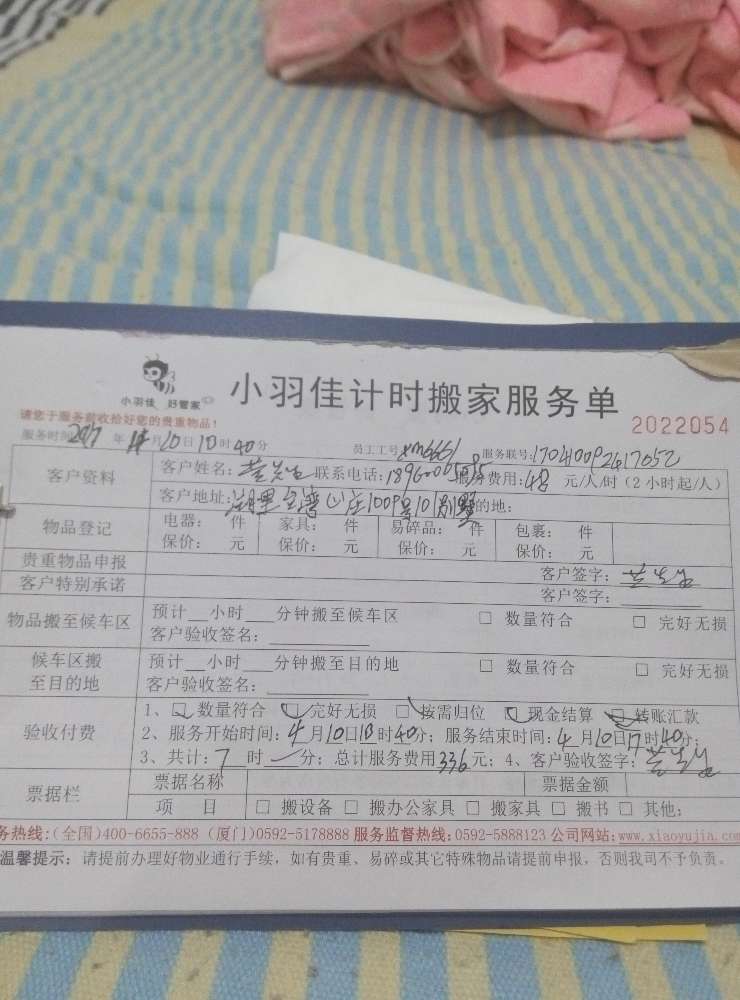 小羽佳 好管家
小羽佳计时搬家服务单
2022054
请您于服务前收拾好您的贵重物品!
服务时间2017年4月10日10时40分 员工工号xm6661 服务联号:
客户资料
客户姓名: 黄先生 联系电话: 服务费用:48 元/人/时(2小时起/人)
客户地址: 目的地:
物品登记
电器: 件 家具: 件 易碎品: 件 包裹: 件
保价: 元 保价: 元 保价: 元 保价: 元
贵重物品申报 客户签字:
客户特别承诺 客户签字:
物品搬至候车区
预计__小时___分钟搬至候车区 □ 数量符合 □ 完好无损
客户验收签名:
候车区搬至目的地
预计__小时___分钟搬至目的地 □ 数量符合 □ 完好无损
客户验收签名:
验收付费
1、□数量符合 □完好无损 □按需归位 □现金结算 □转账汇款
2、服务开始时间:4月10日10时40分; 服务结束时间:4月10日17时40分;
3、共计:7时 分; 总计服务费用336元; 4、客户验收签字:
票据栏
票据名称 票据金额
项 目 □ 搬设备 □ 搬办公家具 □ 搬家具 □ 搬书 □ 其他:
务热线:(全国)400-6655-888 (厦门)0592-5178888 服务监督热线:0592-5888123 公司网站:www.xiaoyujia.com
温馨提示: 请提前办理好物业通行手续, 如有贵重、易碎或其它特殊物品请提前申报, 否则我司不予负责。